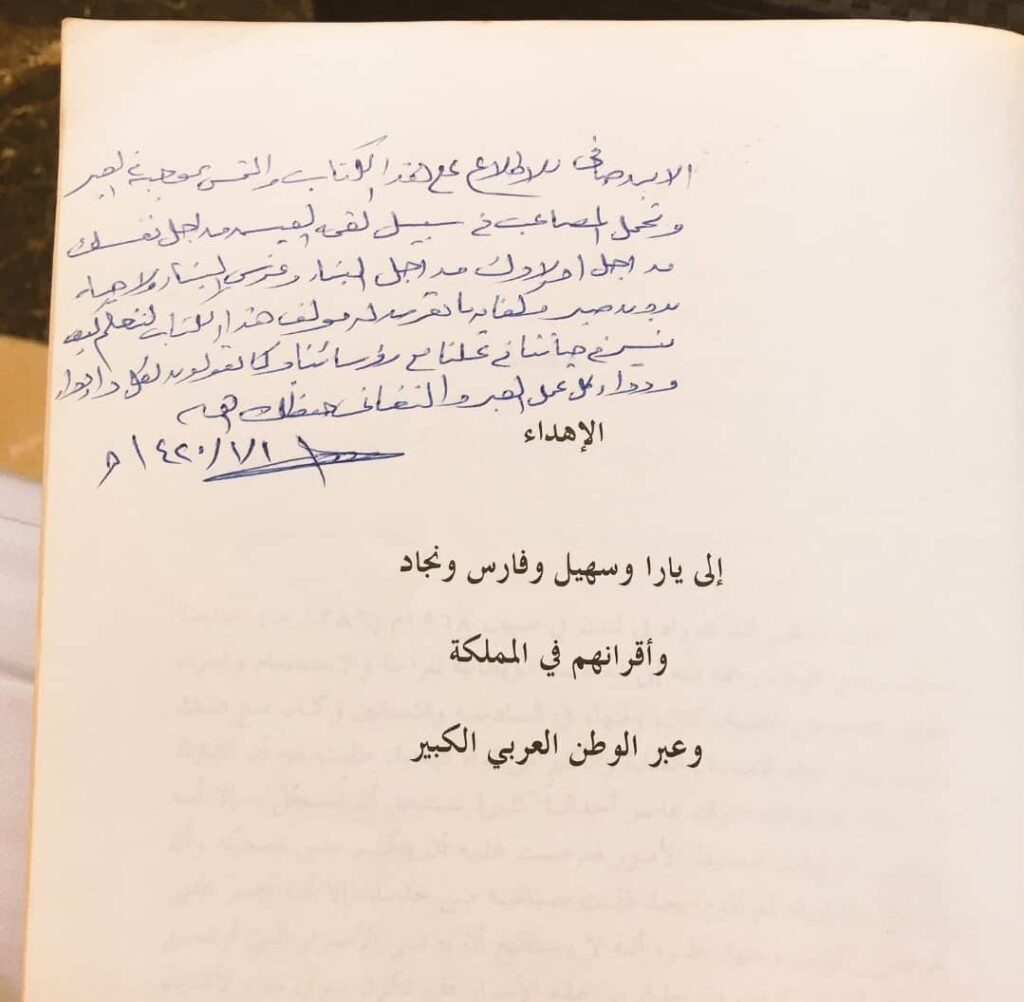 الابن صافي للاطلاع على هذا الكتاب والتمس بموجبة الصبر
وتحمل المصاعب في سبيل لقمة العيش من اجل نفسك
من اجل اولادك من اجل البناء وغرس البناء ولا حياه
بدون صبر وكفاية ما تعرض له مولف هذا الكتاب لنتعلم كيف
نسير في حياتنا في عملنا مع رؤسائنا وكما يقولون لكل داء دواء
ودواء كل عمل الصبر والتفاني حفظك الله
١٤٢٠/١/١ هـ
الإهداء
إلى يارا وسهيل وفارس ونجاد
وأقرانهم في المملكة
وعبر الوطن العربي الكبير